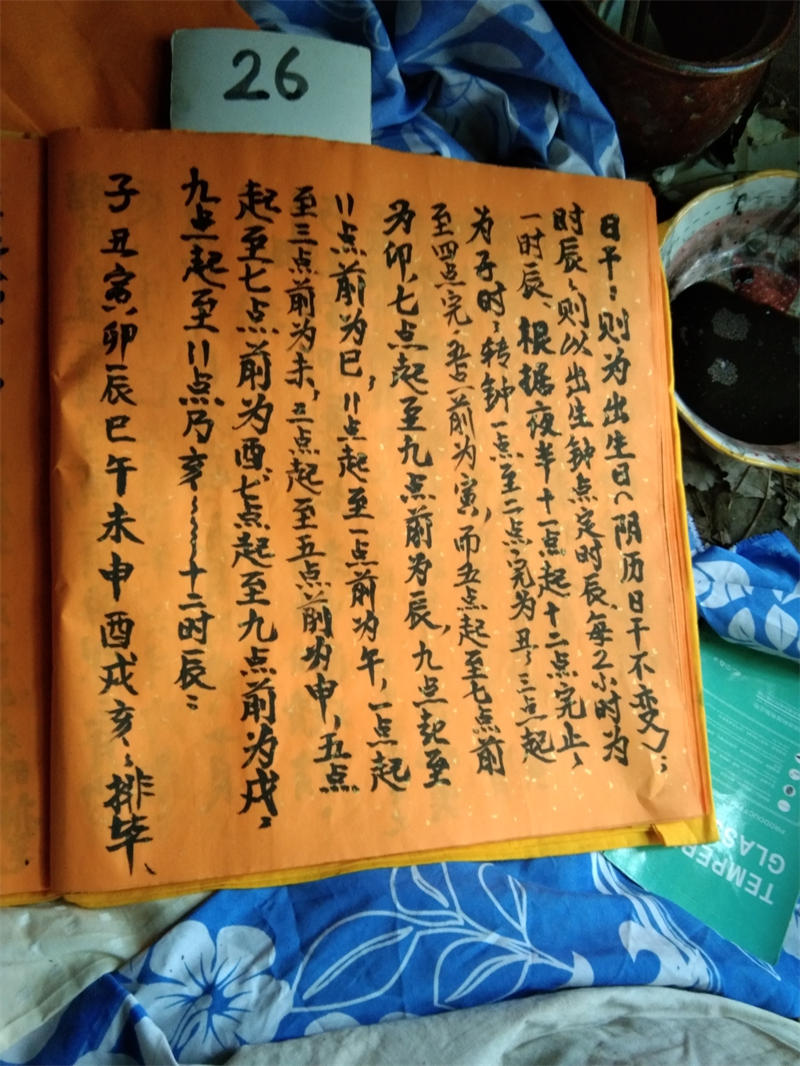 26
日干：则为出生日（阴历日干不变）；
时辰：则以出生钟点定时辰、每2小时为
一时辰、根据夜半十一点起十二点完止、
为子时；转钟一点至二点完为丑；三点起
至四点完、五点前为寅，而五点起至七点前
为卯，七点起至九点前为辰，九点起至
11点前为巳；11点起至一点前为午，一点起
至三点前为未，三点起至五点前为申，五点
起至七点前为酉、七点起至九点前为戌；
九点起至11点乃亥~~~~十二时辰：
子丑寅卯辰巳午未申酉戌亥、、排毕、
TEMPER
GLAS
PRODUCT